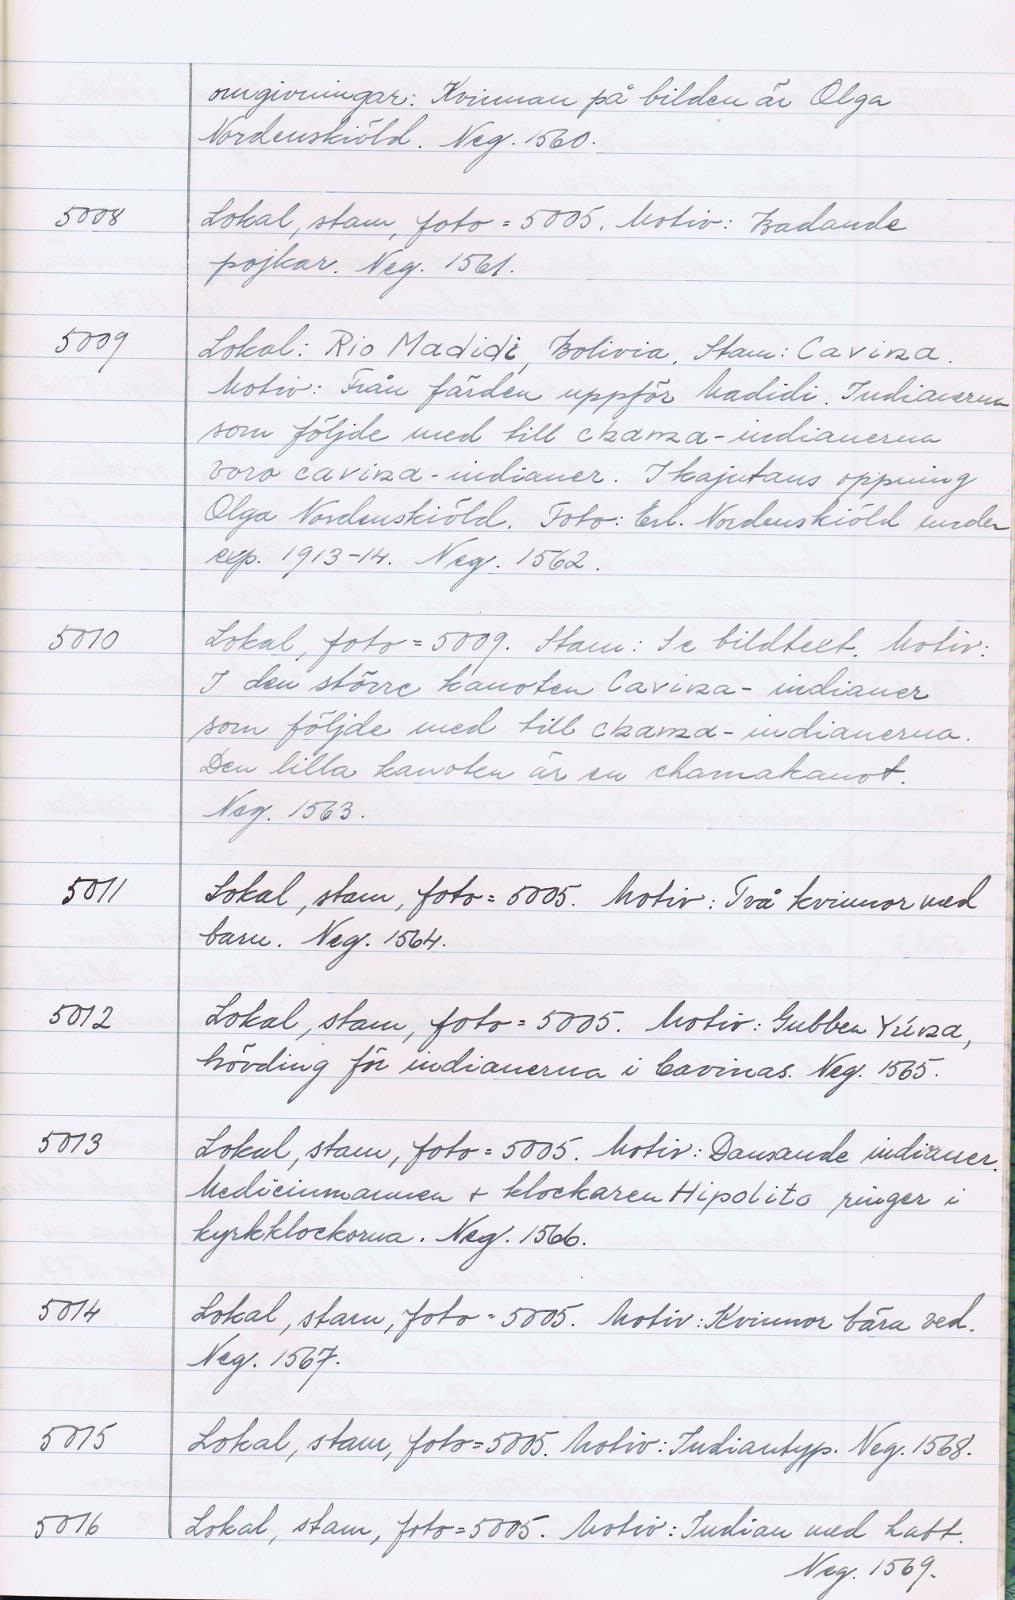 omgivningar: Kvinnan på bilden är Olga
Nordenskiöld. Neg. 1560.
5008 Lokal, stam, foto = 5005. Motiv: Badande
pojkar. Neg. 1561.
5009 Lokal: Rio Madidi, Bolivia. Stam: Cavina.
Motiv: Från färden uppför Madidi. Indianerna
som följde med till chama-indianerna
voro cavina-indianer. I kajutans öppning
Olga Nordenskiöld. Foto: Erl. Nordenskiöld under
exp. 1913-14. Neg. 1562.
5010 Lokal, foto = 5009. Stam: Se bildtext. Motiv:
I den större kanoten Cavina-indianer
som följde med till chama-indianerna.
Den lilla kanoten är en chamakanot.
Neg. 1563.
5011 Lokal, stam, foto = 5005. Motiv: Två kvinnor med
barn. Neg. 1564.
5012 Lokal, stam, foto = 5005. Motiv: Gubben
hövding för indianerna i Cavinas. Neg. 1565.
5013 Lokal, stam, foto = 5005. Motiv: Dansande indianer.
Medicinmannen + klockaren Hipolito ringer i
kyrkklockorna. Neg. 1566.
5014 Lokal, stam, foto = 5005. Motiv: Kvinnor bära ved.
Neg. 1567.
5015 Lokal, stam, foto = 5005. Motiv: Indiantyp. Neg. 1568.
5016 Lokal, stam, foto = 5005. Motiv: Indian med hatt.
Neg. 1569.